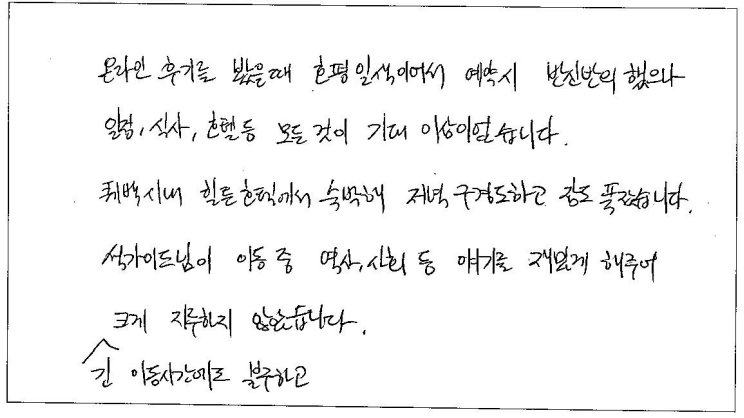 온라인 후기를 봤을때 호평일색이어서 예약시 반신반의 했으나
일정, 식사, 호텔 등 모든 것이 기대 이상이었습니다.
퀘백시내 힐튼호텔에서 숙박해 저녁 구경도하고 잠도 푹잤습니다.
석가이드님이 이동 중 역사, 사회 등 얘기를 재밌게 해주어
크게 지루하지 않았습니다.
긴 이동시간에도 불구하고